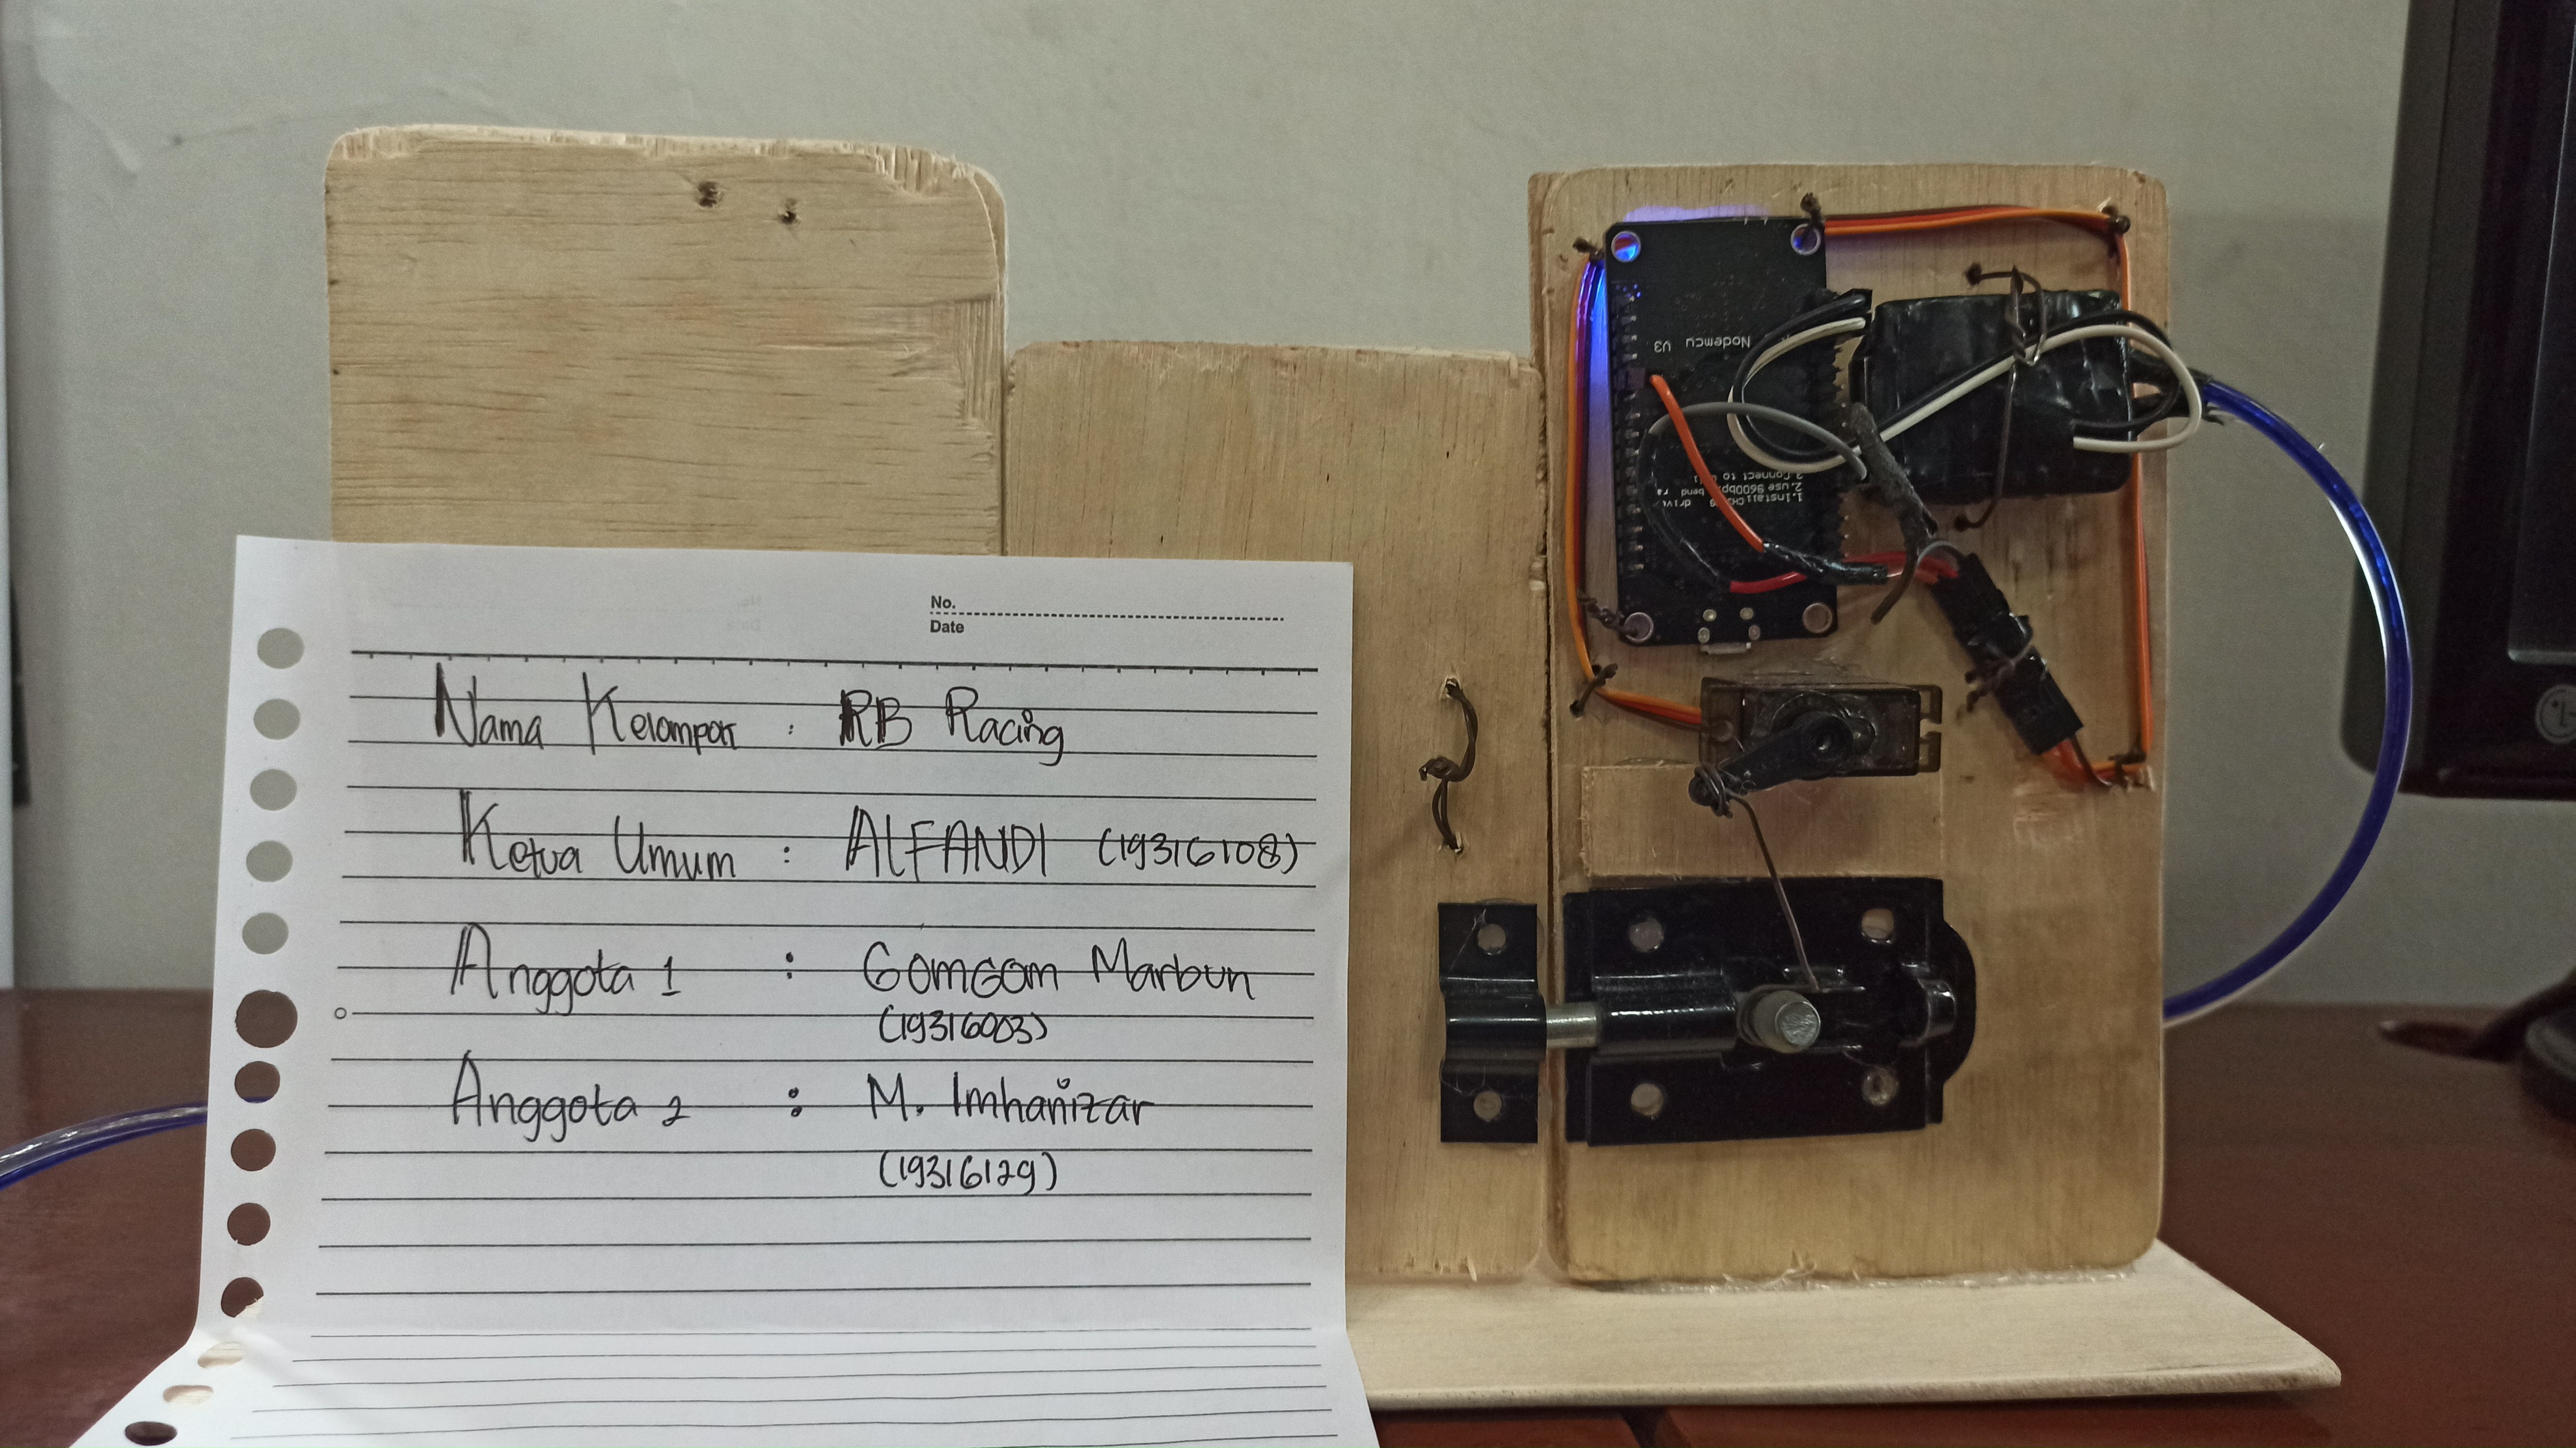 No.
Date
Nama Kelompok : RB Racing
Ketua Umum : ALFANDI (19316108)
Anggota 1 : GOMGOM Marbun
(19316003)
Anggota 2 : M. Imhanizar
(19316129)
Nodemcu V3
1.Install
2.use 9600bps
3.Connect to
LG